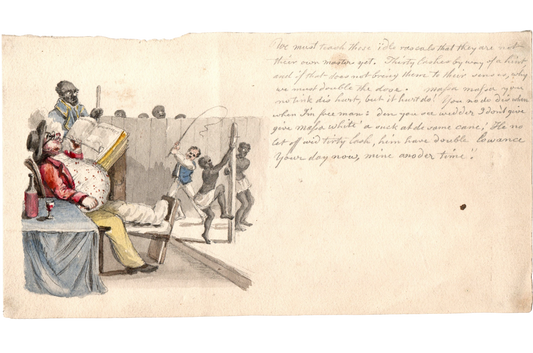 We must teach these idle rascals that they are not
their own masters yet. Thirty lashes by way of a hint,
and if that does not bring them to their senses, why
we must double the dose. Massa massa you
no tink dis hurt, but it hurt do! You no do dis when
when I'm free man: den you see wedder I don't give
give Massa white a suck at de same cane; He no
let off wid tirty lash, him have double lowance
Your day now, mine anoder time!